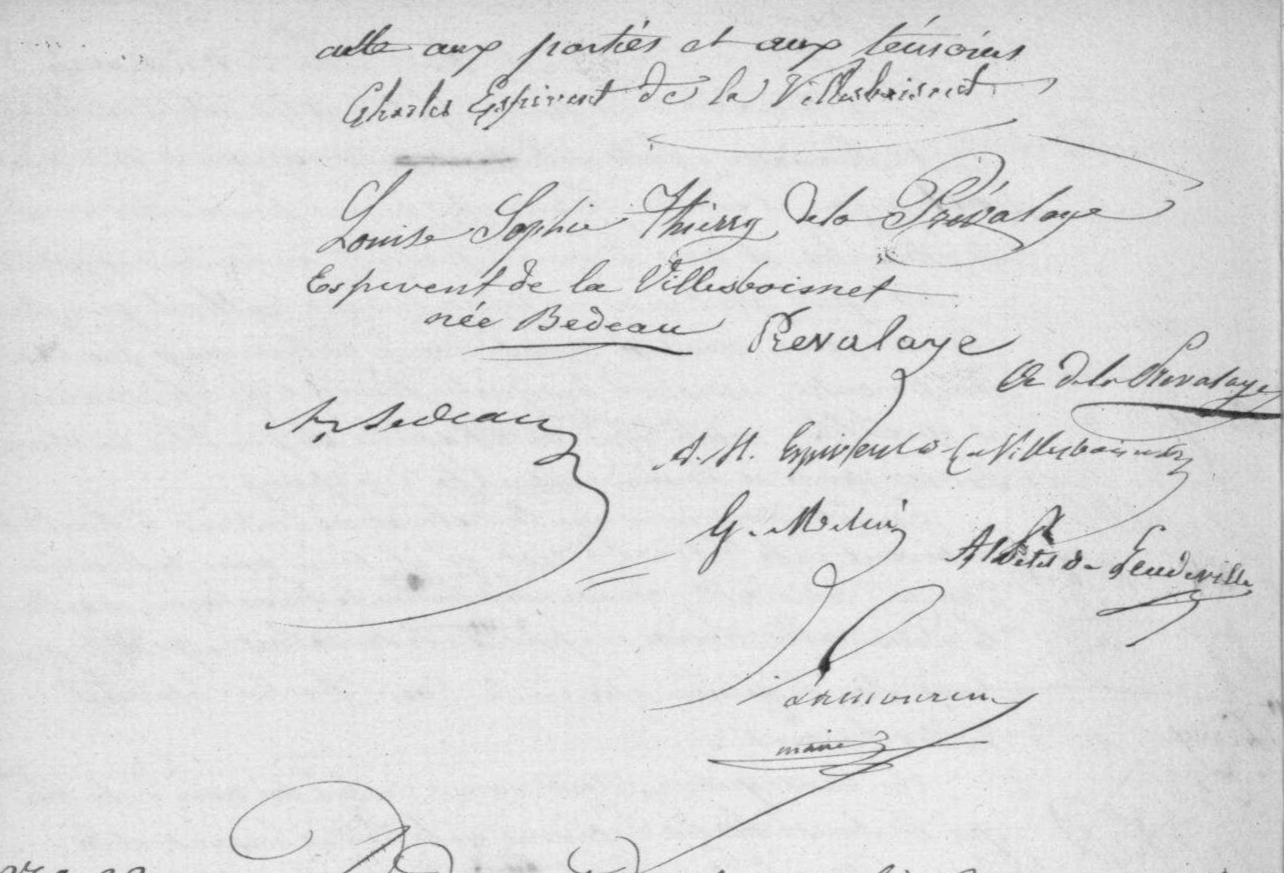 acte aux parties et aux témoins
Charles Espivent de la Villesboisnet
Louise Sophie Thierry de la Prévalaye
Espivent de la Villesboisnet
née Bedeau
Prevalaye
de la Prevalaye
Ar Bedeau
A. H. Espivent de la Villesboisnet
G.
Petit de Leudeville
maire